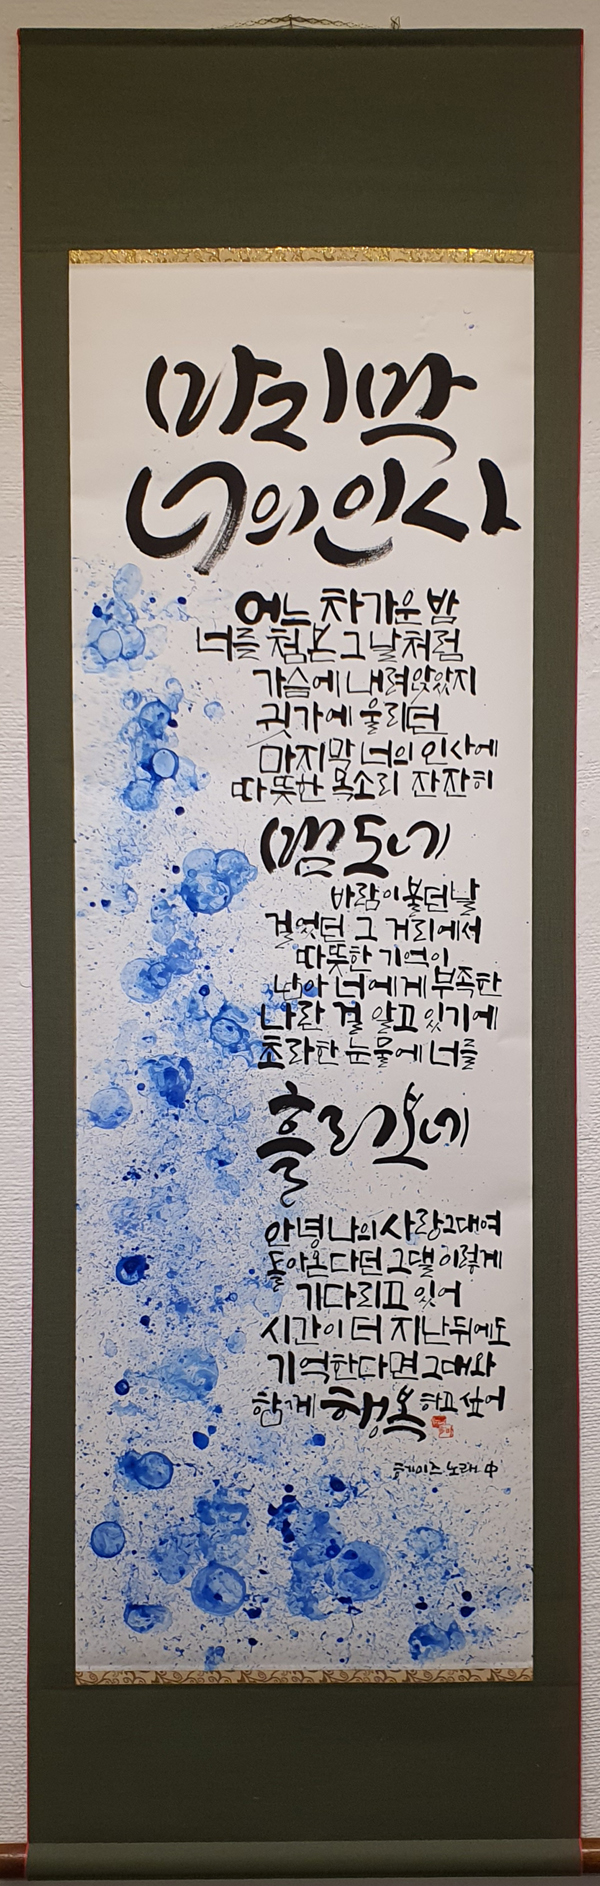 마지막
너의 인사
어느 차가운 밤
너를 첨 본 그날처럼
가슴에 내려앉았지
귓가에 울리던
마지막 너의 인사에
따뜻한 목소리 잔잔히
맴도네
바람이 불던 날
걸었던 그 거리에서
따뜻한 기억이
남아 너에게 부족한
나란 걸 알고 있기에
초라한 눈물에 너를
흘려보네
안녕 나의 사랑 그대여
돌아온다던 그댈 이렇게
기다리고 있어
시간이 더 지난 뒤에도
기억한다면 그대와
함께 행복하고 싶어
헤이즈 노래 中